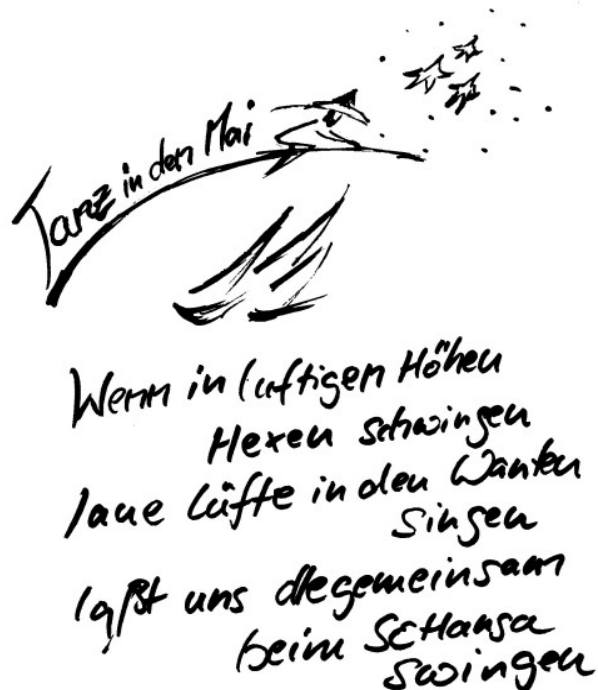 Tanz in den Mai
Wenn in luftigen Höhen
Hexen schwingen
laue Lüfte in den Wanten
singen
laßt uns allegemeinsam
beim SCHansa
swingen